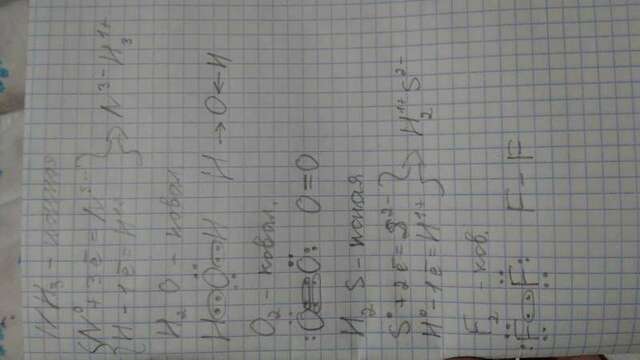 NH₃ - ионная
N⁰ + 3ē = N³⁻
H - 1ē = H¹⁺
N³⁻H₃¹⁺
H₂ O - ковал
H O H H → O ← H
O₂ - ковал.
O O O = O
H₂ S - ионая
S⁰ + 2ē = S²⁻
H⁰ - 1ē = H¹⁺
H₂¹⁺S²⁻
F₂ - ков.
F F F - F